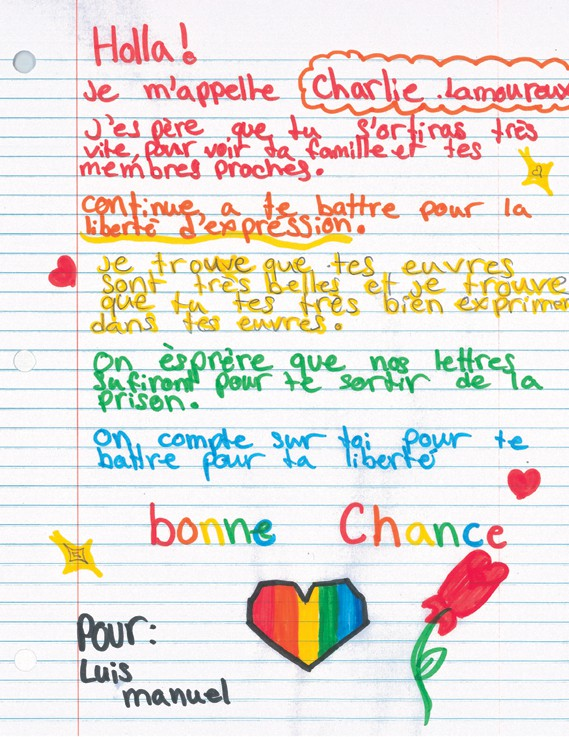 Holla!
Je m'appelle Charlie Lamoureux
J'espère que tu s'ortiras très
vite pour voir ta famille et tes
membres proches.
continue a te battre pour la
liberté d'expression.
Je trouve que tes euvres
sont très belles et je trouve
que tu tes très bien exprimer
dans tes euvres.
On èsprère que nos lettres
sufiront pour te sortir de la
prison.
On compte sur toi pour te
battre pour ta liberté
bonne Chance
Pour:
Luis
manuel